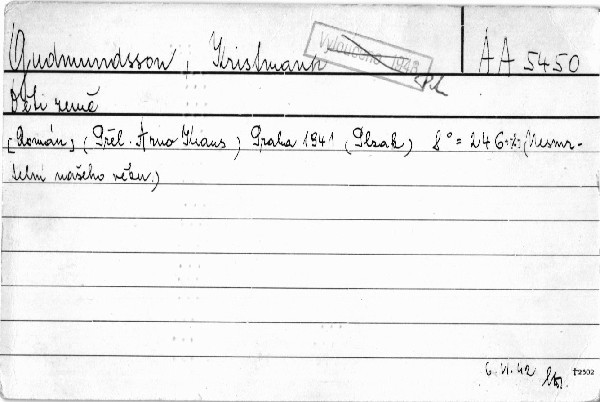 Gudmundsson, Kristmann
Vyloučeno 1948
AA 5450
Děti země
[Román] (Přel. Arno Kraus) Praha 1941 (Plzák) 8° = 246 (Nesmr-
telní našeho věku.)
6. VI. 42